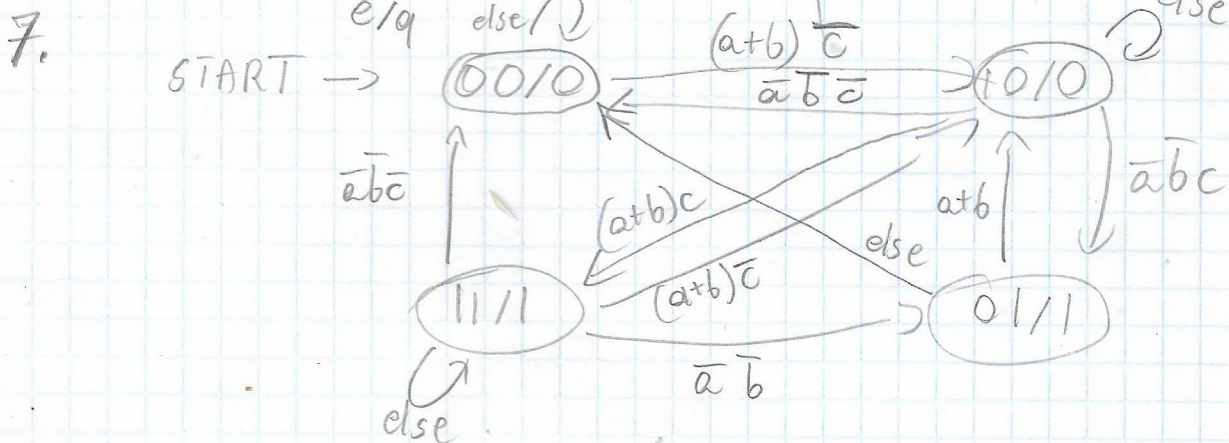 7.
e/q else/
START → 00/0
(a+b) c̅
a̅ b̅ c̅
10/0
a̅ b̅ c̅
(a+b)c
a+b
a̅ b̅ c
else
(a+b) c̅
11/1
01/1
a̅ b̅
else